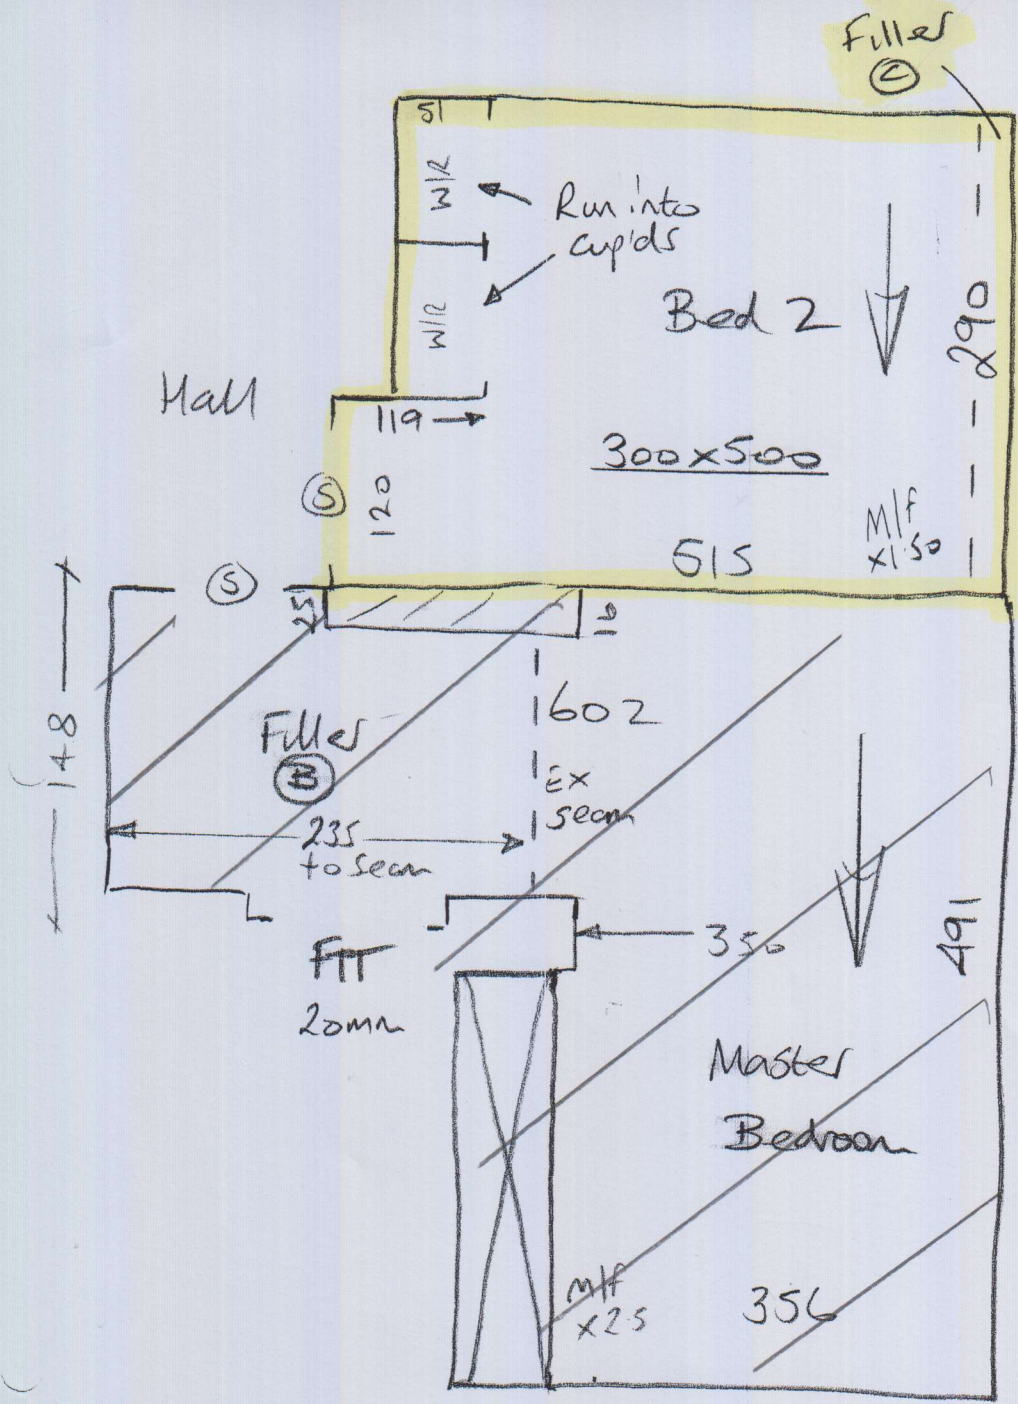 Filler
C
51
W/R
Run into
cup'ds
W/R
Bed 2
290
Hall
119
300x500
S
120
M/f
x1.50
515
S
25
10
148
602
Filler
B
Ex
seam
235
to seam
350
491
FTT
20mm
Master
Bedroom
M/f
x2.5
356